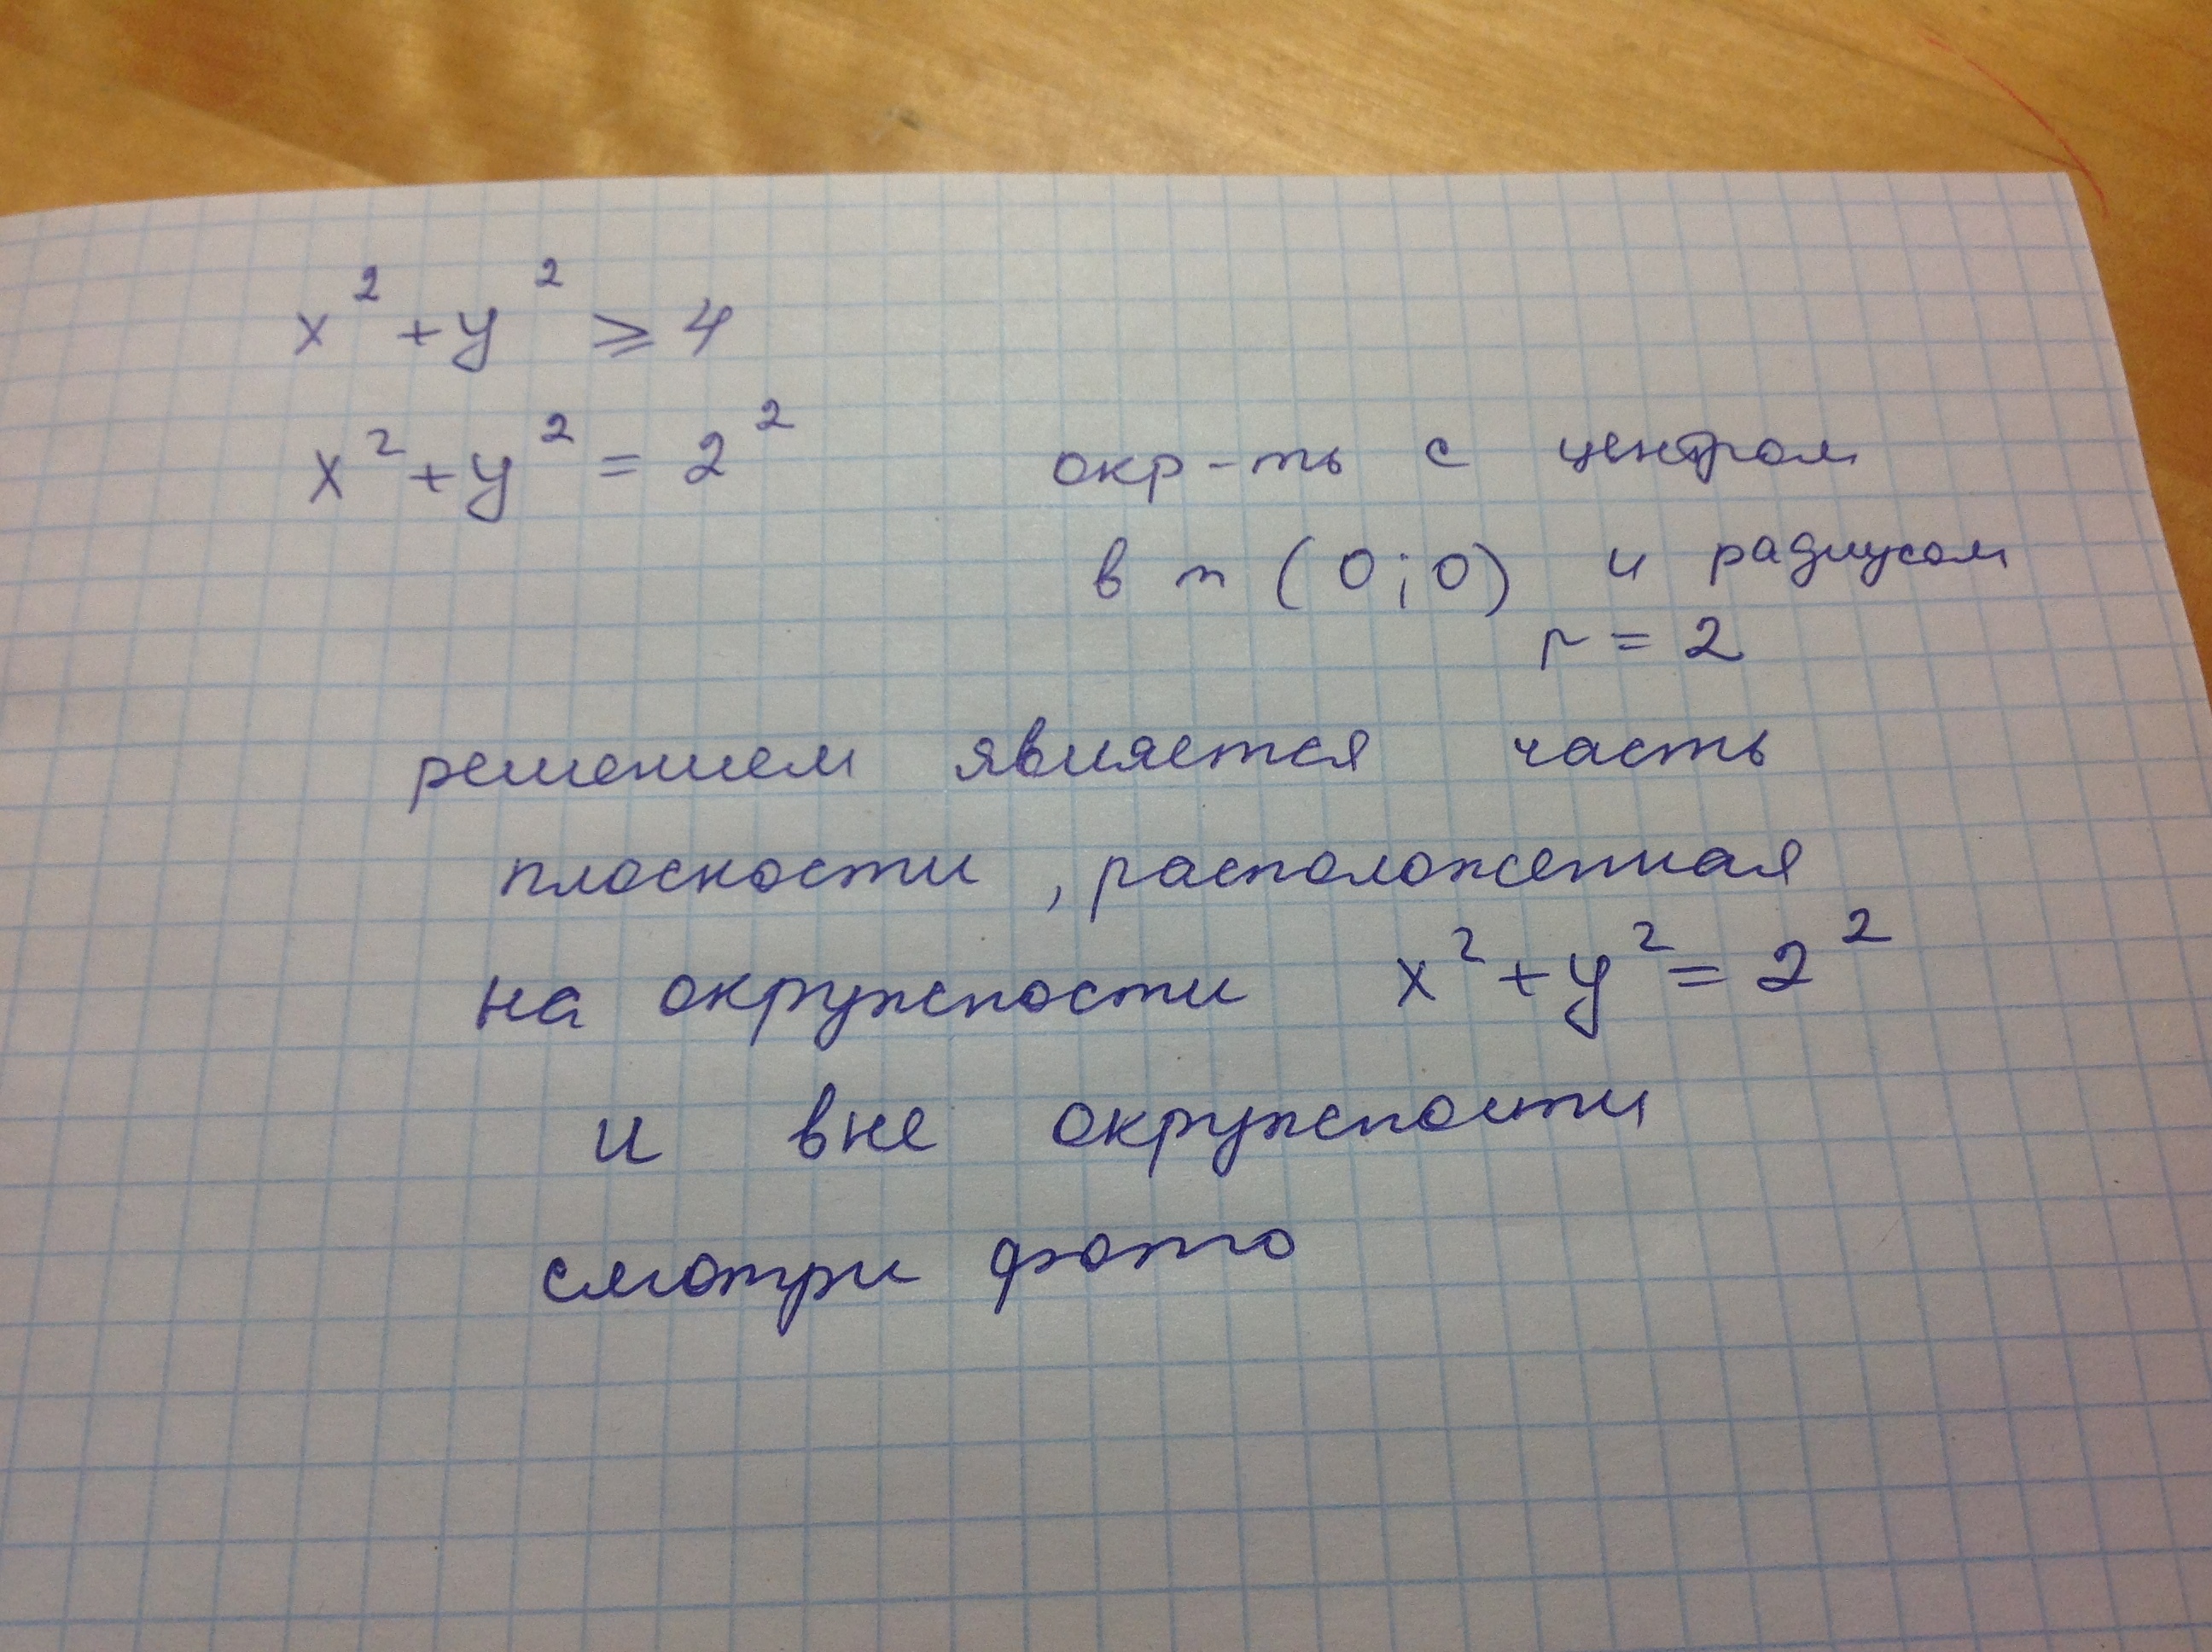 x² + y² ⩾ 4
x² + y² = 2² окр-ть с центром
в т (0;0) и радиусом
r = 2
решением является часть
плоскости, расположенная
на окружности x² + y² = 2²
и вне окружности
смотри фото